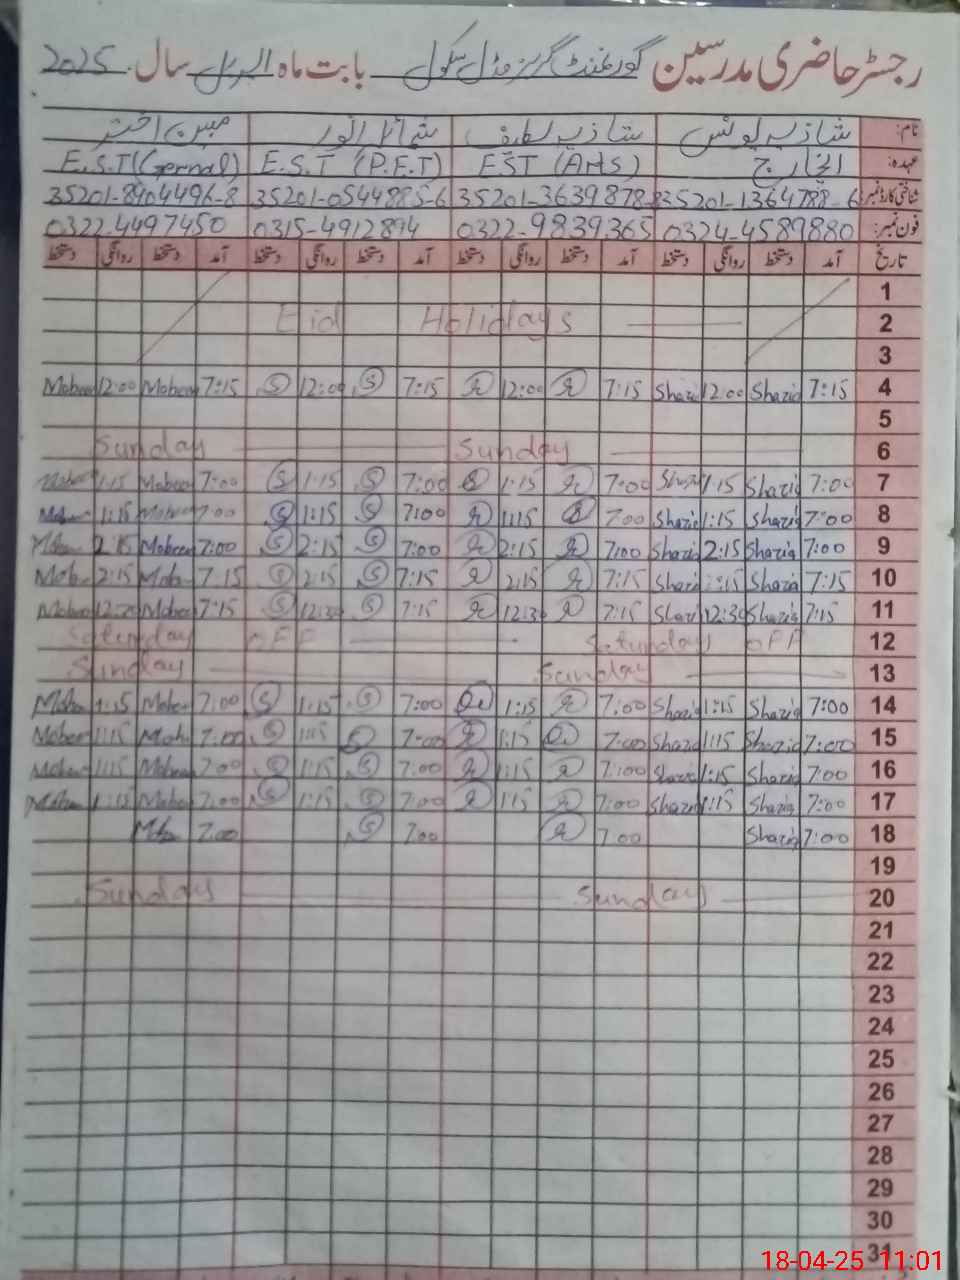 رجسٹر حاضری مدرسین گورنمنٹ گرلز مڈل سکول بابت ماہ اپریل سال 2025
نام: شازیہ یونس شازیہ لطیف شمائل انور مبین اختر
عہدہ: انچارج EST (Arts) E.S.T (P.E.T) E.S.T (General)
شناختی کارڈ نمبر: 35201-1364788-6 35201-3639878-8 35201-0544885-6 35201-8404496-8
فون نمبر: 0324-4589880 0322-9839365 0315-4912894 0322-4497450
تاریخ آمد دستخط روانگی دستخط آمد دستخط روانگی دستخط آمد دستخط روانگی دستخط آمد دستخط روانگی دستخط
1
2 Eid Holidays
3
4 7:15 Shazia 12:00 Shazia 7:15 12:00 7:15 S 12:00 S 7:15 Mobeen 12:00 Mobeen
5
6 Sunday Sunday
7 7:00 Shazia 1:15 7:00 1:15 7:00 S 1:15 S 7:00 Mobeen 1:15
8 7:00 Shazia 1:15 Shazia 7:00 1:15 7:00 S 1:15 S 7:00 Mobeen 1:15
9 7:00 Shazia 2:15 Shazia 7:00 2:15 7:00 S 2:15 S 7:00 Mobeen 2:15
10 7:15 Shazia :15 Shazia 7:15 2:15 7:15 S 2:15 S 7:15 Mob 2:15 Mob
11 7:15 Shazia 12:30 7:15 12:30 7:15 S 12:30 S 7:15 Mobeen 12:30 Mobeen
12 Saturday OFF Saturday OFF
13 Sunday Sunday
14 7:00 Shazia 1:15 Shazia 7:00 1:15 7:00 S 1:15 S 7:00 1:15
15 7:00 Shazia 1:15 7:00 1:15 7:00 S 1:15 S 7:00 1:15
16 7:00 Shazia 1:15 Shazia 7:00 1:15 7:00 S 1:15 S 7:00 Mobeen 1:15
17 7:00 Shazia 1:15 Shazia 7:00 1:15 7:00 S 1:15 S 7:00 1:15
18 7:00 Shazia 7:00 7:00 S 7:00
19
20 Sunday Sunday
21
22
23
24
25
26
27
28
29
30
31
18-04-25 11:01